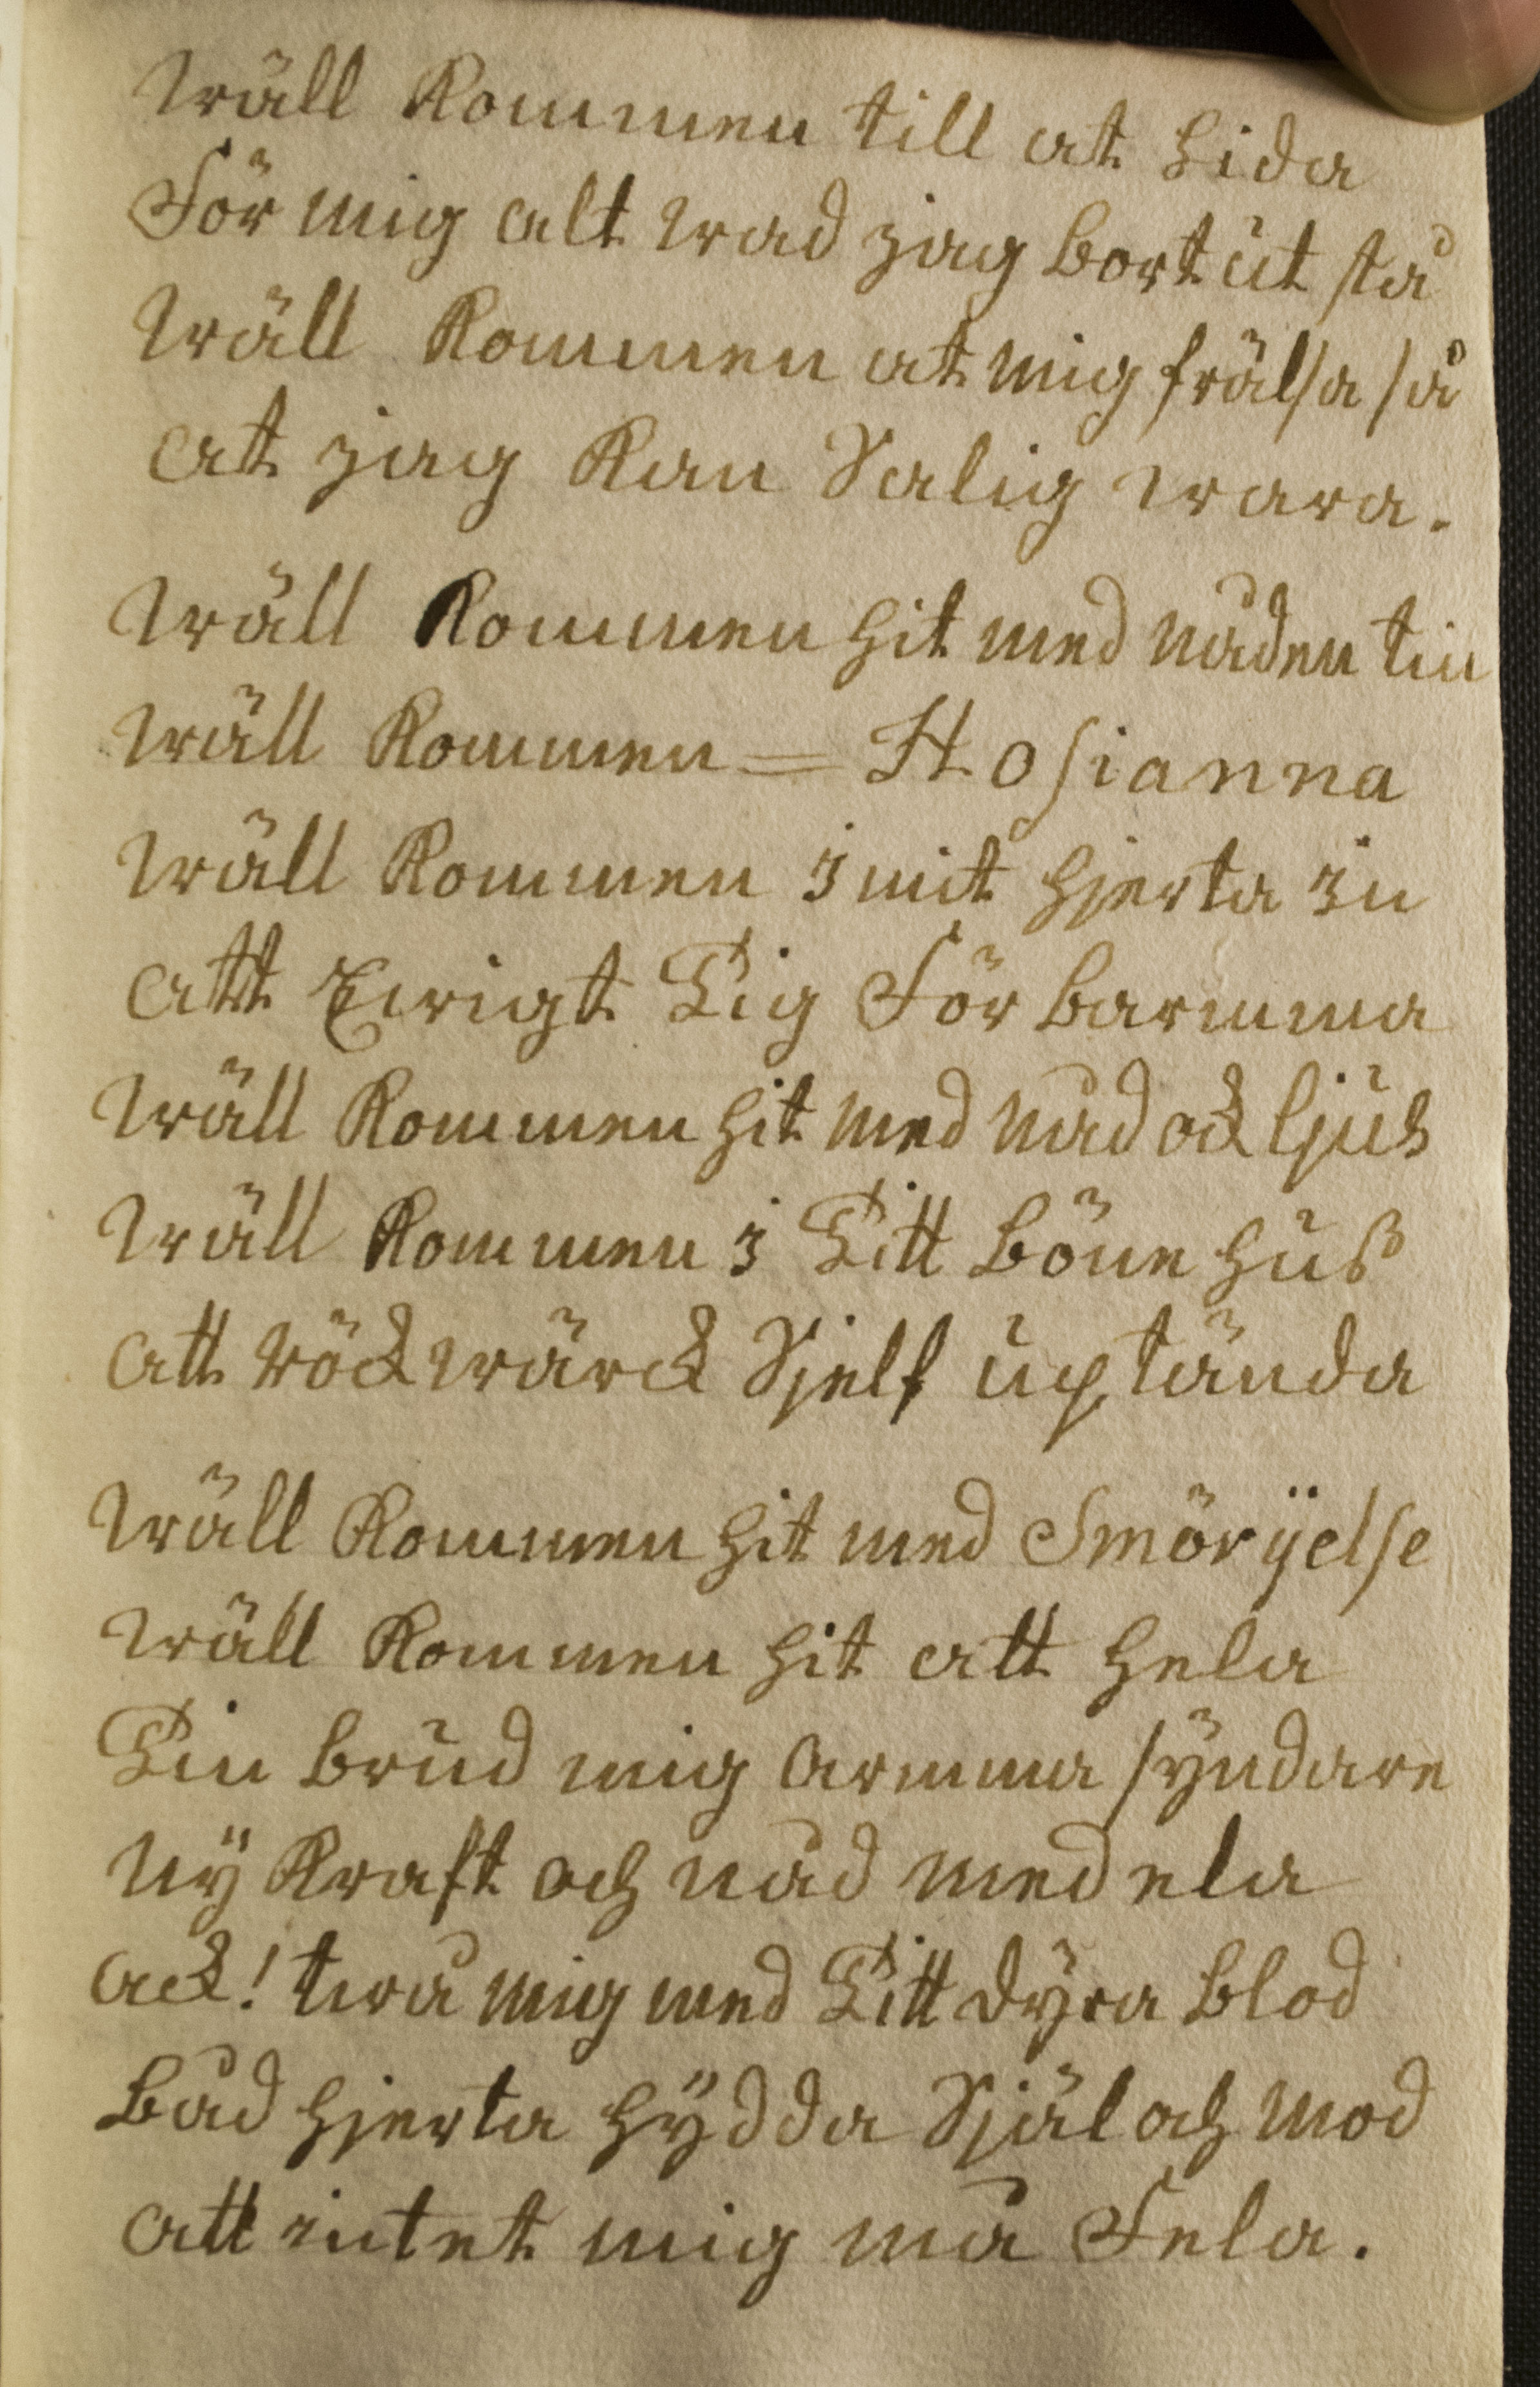 Wäll Kommen till at Lida
För mig alt wad jag bort ut stå
Wäll Kommen at mig frälsa så
at jag Kan Salig wara.
Wäll Kommen hit med nåden tin
Wäll Kommen = Hosianna
Wäll Kommen i mit hjerta in
att Ewigt Tig För barmma
Wäll Kommen hit med nåd ock ljus
Wäll Kommen i Titt Böne huß
att röckwärck Sjelf uptända
Wäll Kommen hit med Smörÿelse
Wäll Kommen hit att hela
Tin Brud mig armma sÿndare
nÿ Kraft och nåd med ela
ack! twå mig med Titt dÿra Blod
Båd hjerta hÿdda Själ och mod
att intet mig må Fela.